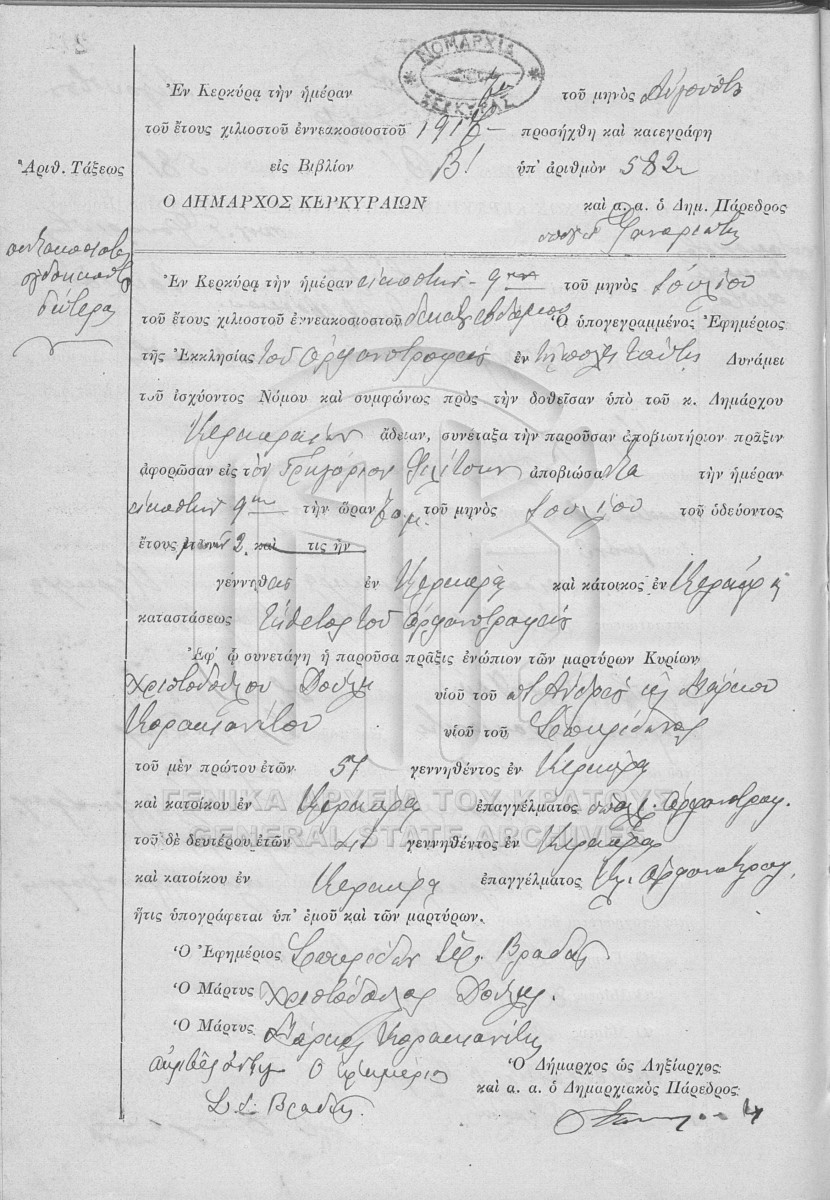 ΝΟΜΑΡΧΙΑ
ΚΕΡΚΥΡΑΣ
Ἐν Κερκύρᾳ τὴν ἡμέραν τοῦ μηνὸς Αὐγούστου
τοῦ ἔτους χιλιοστοῦ ἐννεακοσιοστοῦ 1917 προσήχθη καὶ κατεγράφη
Ἀριθ. Τάξεως εἰς Βιβλίον Β! ὑπ' ἀριθμὸν 582
Ὁ ΔΗΜΑΡΧΟΣ ΚΕΡΚΥΡΑΙΩΝ καὶ α. α. ὁ Δημ. Πάρεδρος
πεντακοσιοστὸς
ὀγδοηκοστὸς
δεύτερος
Ἐν Κερκύρᾳ τὴν ἡμέραν εἰκοστὴν - 9ην τοῦ μηνὸς Ἰουλίου
τοῦ ἔτους χιλιοστοῦ ἐννεακοσιοστοῦ δεκάτου ἑβδόμου Ὁ ὑπογεγραμμένος Ἐφημέριος
τῆς Ἐκκλησίας τοῦ Ὀρφανοτροφείου ἐν τῇ πόλει ταύτῃ Δυνάμει
τοῦ ἰσχύοντος Νόμου καὶ συμφώνως πρὸς τὴν δοθεῖσαν ὑπὸ τοῦ κ. Δημάρχου
Κερκυραίων ἄδειαν, συνέταξα τὴν παροῦσαν ἀποβιωτήριον πρᾶξιν
ἀφορῶσαν εἰς τὸν Γρηγόριον ἀποβιώσαντα τὴν ἡμέραν
εἰκοστὴν 9ην τὴν ὥραν τοῦ μηνὸς Ἰουλίου τοῦ ὁδεύοντος
ἔτους μηνῶν 2 καὶ τις ἦν
γεννηθεὶς ἐν Κερκύρᾳ καὶ κάτοικος ἐν Κερκύρᾳ
καταστάσεως ἔκθετος τοῦ Ὀρφανοτροφείου
Ἐφ' ᾧ συνετάγη ἡ παροῦσα πρᾶξις ἐνώπιον τῶν μαρτύρων Κυρίων
Χριστοδούλου Δούλη υἱοῦ τοῦ π Ἀνδρέα καὶ Μάρκου
Κορακιανίτου υἱοῦ τοῦ Σπυρίδωνος
τοῦ μὲν πρώτου ἐτῶν 57 γεννηθέντος ἐν Κερκύρᾳ
καὶ κατοίκου ἐν Κερκύρᾳ ἐπαγγέλματος ὑπάλ. Ὀρφανοτροφ.
τοῦ δὲ δευτέρου ἐτῶν γεννηθέντος ἐν Κερκύρᾳ
καὶ κατοίκου ἐν Κερκύρᾳ ἐπαγγέλματος Ὀρφανοτροφ.
ἥτις ὑπογράφεται ὑπ' ἐμοῦ καὶ τῶν μαρτύρων.
Ὁ Ἐφημέριος Σπυρίδων Ἱερ. Βραδῆς
Ὁ Μάρτυς Χριστόδουλος Δούλης.
Ὁ Μάρτυς Μάρκος Κορακιανίτης
Ὁ ἐφημέριος
Σ. Ι. Βραδῆς
Ὁ Δήμαρχος ὡς Ληξίαρχος
καὶ α. α. ὁ Δημαρχιακὸς Πάρεδρος
ΓΕΝΙΚΑ ΑΡΧΕΙΑ ΤΟΥ ΚΡΑΤΟΥΣ
GENERAL STATE ARCHIVES